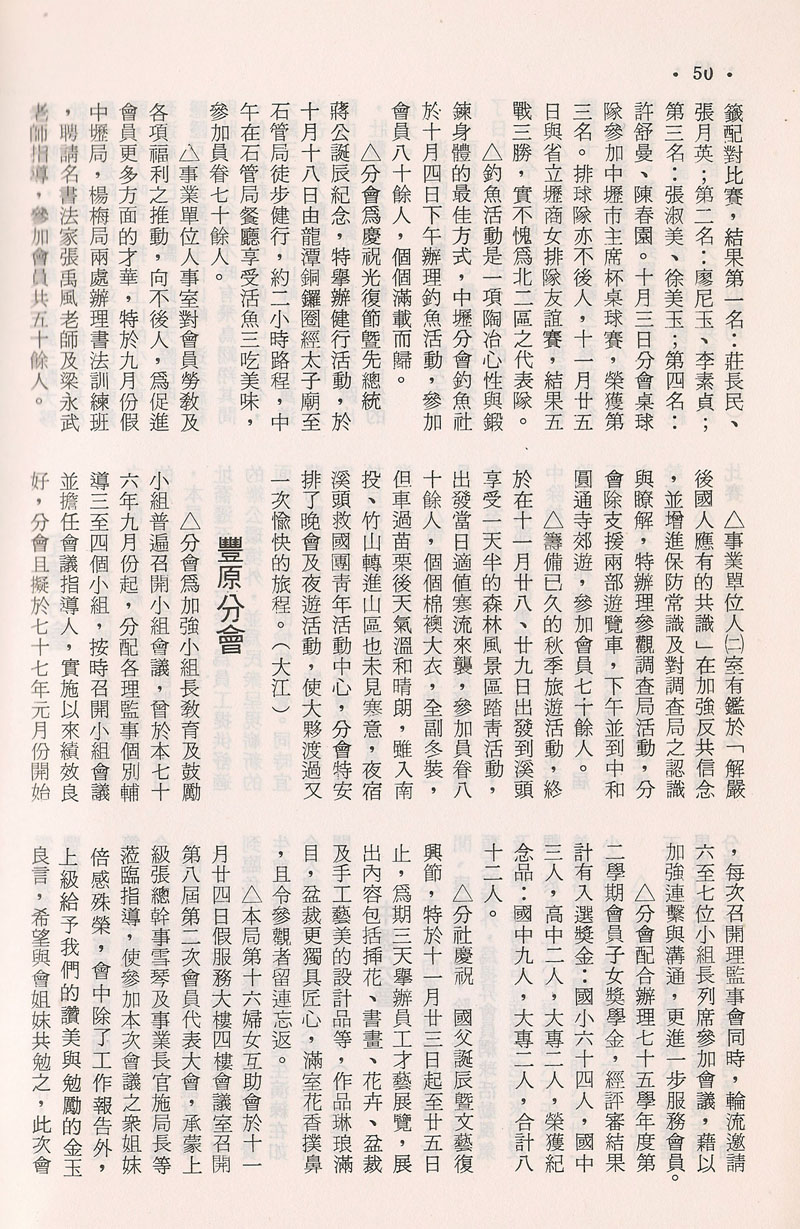 • 50 •
籤配對比賽，結果第一名：莊長民、
張月英；第二名：廖尼玉、李素貞；
第三名：張淑美、徐美玉；第四名：
許舒曼、陳春園。十月三日分會桌球
隊參加中壢市主席杯桌球賽，榮獲第
三名。排球隊亦不後人，十一月廿五
日與省立壢商女排隊友誼賽，結果五
戰三勝，實不愧爲北二區之代表隊。
△釣魚活動是一項陶冶心性與鍛
鍊身體的最佳方式，中壢分會釣魚社
於十月四日下午辦理釣魚活動，參加
會員八十餘人，個個滿載而歸。
△分會爲慶祝光復節暨先總統
蔣公誕辰紀念，特舉辦健行活動，於
十月十八日由龍潭銅鑼圈經太子廟至
石管局徒步健行，約二小時路程，中
午在石管局餐廳享受活魚三吃美味，
參加員眷七十餘人。
△事業單位人事室對會員勞教及
各項福利之推動，向不後人，爲促進
會員更多方面的才華，特於九月份假
中壢局，楊梅局兩處辦理書法訓練班
，聘請名書法家張禹風老師及梁永武
老師指導，參加會員共五十餘人。
△事業單位人㈡室有鑑於「解嚴
後國人應有的共識」在加強反共信念
，並增進保防常識及對調查局之認識
與瞭解，特辦理參觀調查局活動，分
會除支援兩部遊覽車，下午並到中和
圓通寺郊遊，參加會員七十餘人。
△籌備已久的秋季旅遊活動，終
於在十一月廿八、廿九日出發到溪頭
享受一天半的森林風景區踏青活動，
出發當日適值寒流來襲，參加員眷八
十餘人，個個棉襖大衣，全副冬裝，
但車過苗栗後天氣溫和晴朗，雖入南
投、竹山轉進山區也未見寒意，夜宿
溪頭救國團青年活動中心，分會特安
排了晚會及夜遊活動，使大夥渡過又
一次愉快的旅程。（大江）
豐原分會
△分會爲加強小組長教育及鼓勵
小組普遍召開小組會議，曾於本七十
六年九月份起，分配各理監事個別輔
導三至四個小組，按時召開小組會議
並擔任會議指導人，實施以來績效良
好，分會且擬於七十七年元月份開始
，每次召開理監事會同時，輪流邀請
六至七位小組長列席參加會議，藉以
加強連繫與溝通，更進一步服務會員。
△分會配合辦理七十五學年度第
二學期會員子女獎學金，經評審結果
計有入選獎金：國小六十四人，國中
三人，高中二人，大專二人，榮獲紀
念品：國中九人，大專二人，合計八
十二人。
△分社慶祝　國父誕辰暨文藝復
興節，特於十一月廿三日起至廿五日
止，爲期三天舉辦員工才藝展覽，展
出內容包括揷花、書畫、花卉、盆裁
及手工藝美的設計品等，作品琳琅滿
目，盆裁更獨具匠心，滿室花香撲鼻
，且令參觀者留連忘返。
△本局第十六婦女互助會於十一
月廿四日假服務大樓四樓會議室召開
第八屆第二次會員代表大會，承蒙上
級張總幹事雪琴及事業長官施局長等
蒞臨指導，使參加本次會議之衆姐妹
倍感殊榮，會中除了工作報告外，
上級給予我們的讚美與勉勵的金玉
良言，希望與會姐妹共勉之，此次會